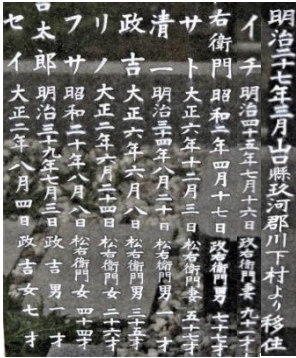 明治二十七年三月山口縣玖河郡川下村より移住
イチ 明治四十五年七月十六日 政右衛門妻 九十一才
右衛門 昭和二年四月十七日 政右衛門男 七十七才
サト 大正六年十二月三日 松右衛門妻 五十七才
清一 明治三十四年八月二十日 松右衛門男 一才
政吉 大正六年六月八日 松右衛門男 三十五才
リノ 大正二年六月二十四日 松右衛門女 二十六才
フサ 昭和二十年八月八日 松右衛門女 四十四才
太郎 明治三十九年七月三日 政吉男 一才
セイ 大正二年八月四日 政吉女 七才